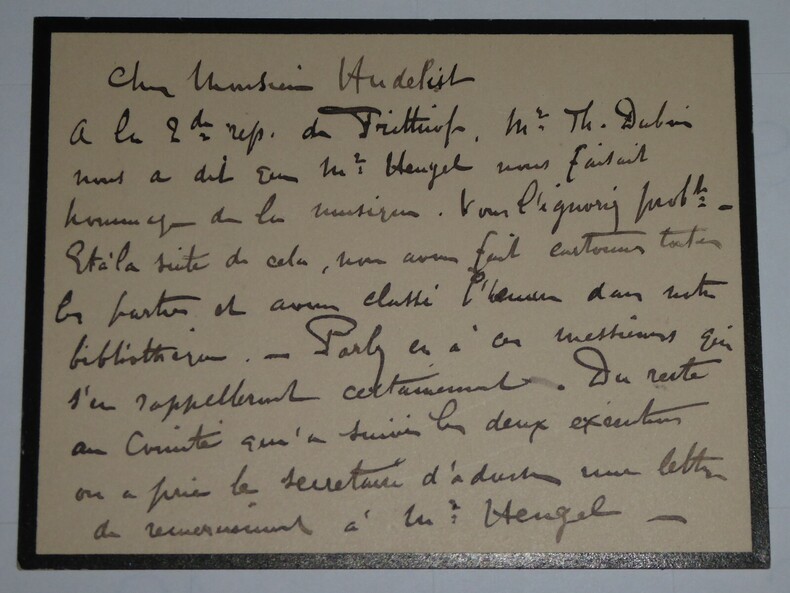 Cher Monsieur Hudelist
A la 2de rep. de Frithiof, Mr Th. Dubois
nous a dit que Mr Heugel nous faisait
hommage de la musique. Vous l'ignoriez probt –
Et à la suite de cela, nous avons fait cartonner toutes
les parties et avons classé l'œuvre dans notre
bibliothèque. – Parlez en à ces messieurs qui
s'en rappelleront certainement. Du reste
au Comité qui a suivi les deux exécutions
on a prié le secrétaire d'adresser une lettre
de remerciement à Mr Heugel –